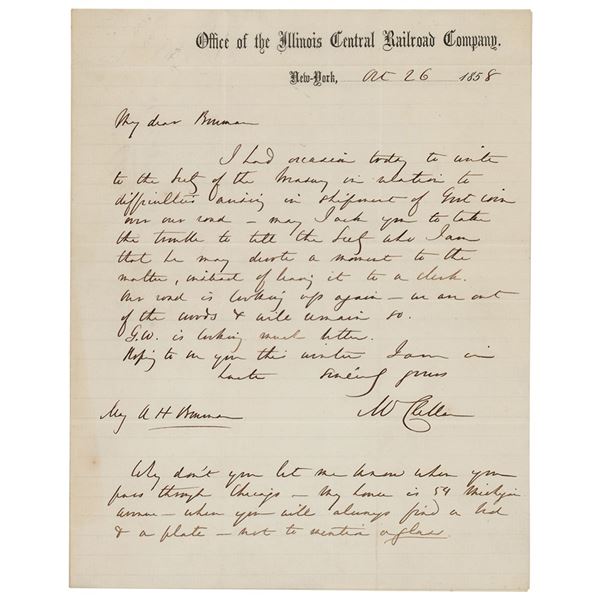 Office of the Illinois Central Railroad Company.
New-York, Oct 26 1858
My dear Bowman
I had occasion today to write
to the Secty of the Treasury in relation to
difficulties arising in shipment of Govt coin
over our road - may I ask you to take
the trouble to tell the Secty who I am
that he may devote a moment to the
matter, instead of leaving it to a clerk.
Our road is looking up again - we are out
of the woods & will remain so.
G.W. is looking much better.
Hoping to see you this winter I am in
haste sincerely yours
McClellan
Maj A H Bowman
Why don't you let me know when you
pass through Chicago - My house is 54 Michigan
avenue - where you will always find a bed
& a plate - not to mention a glass.